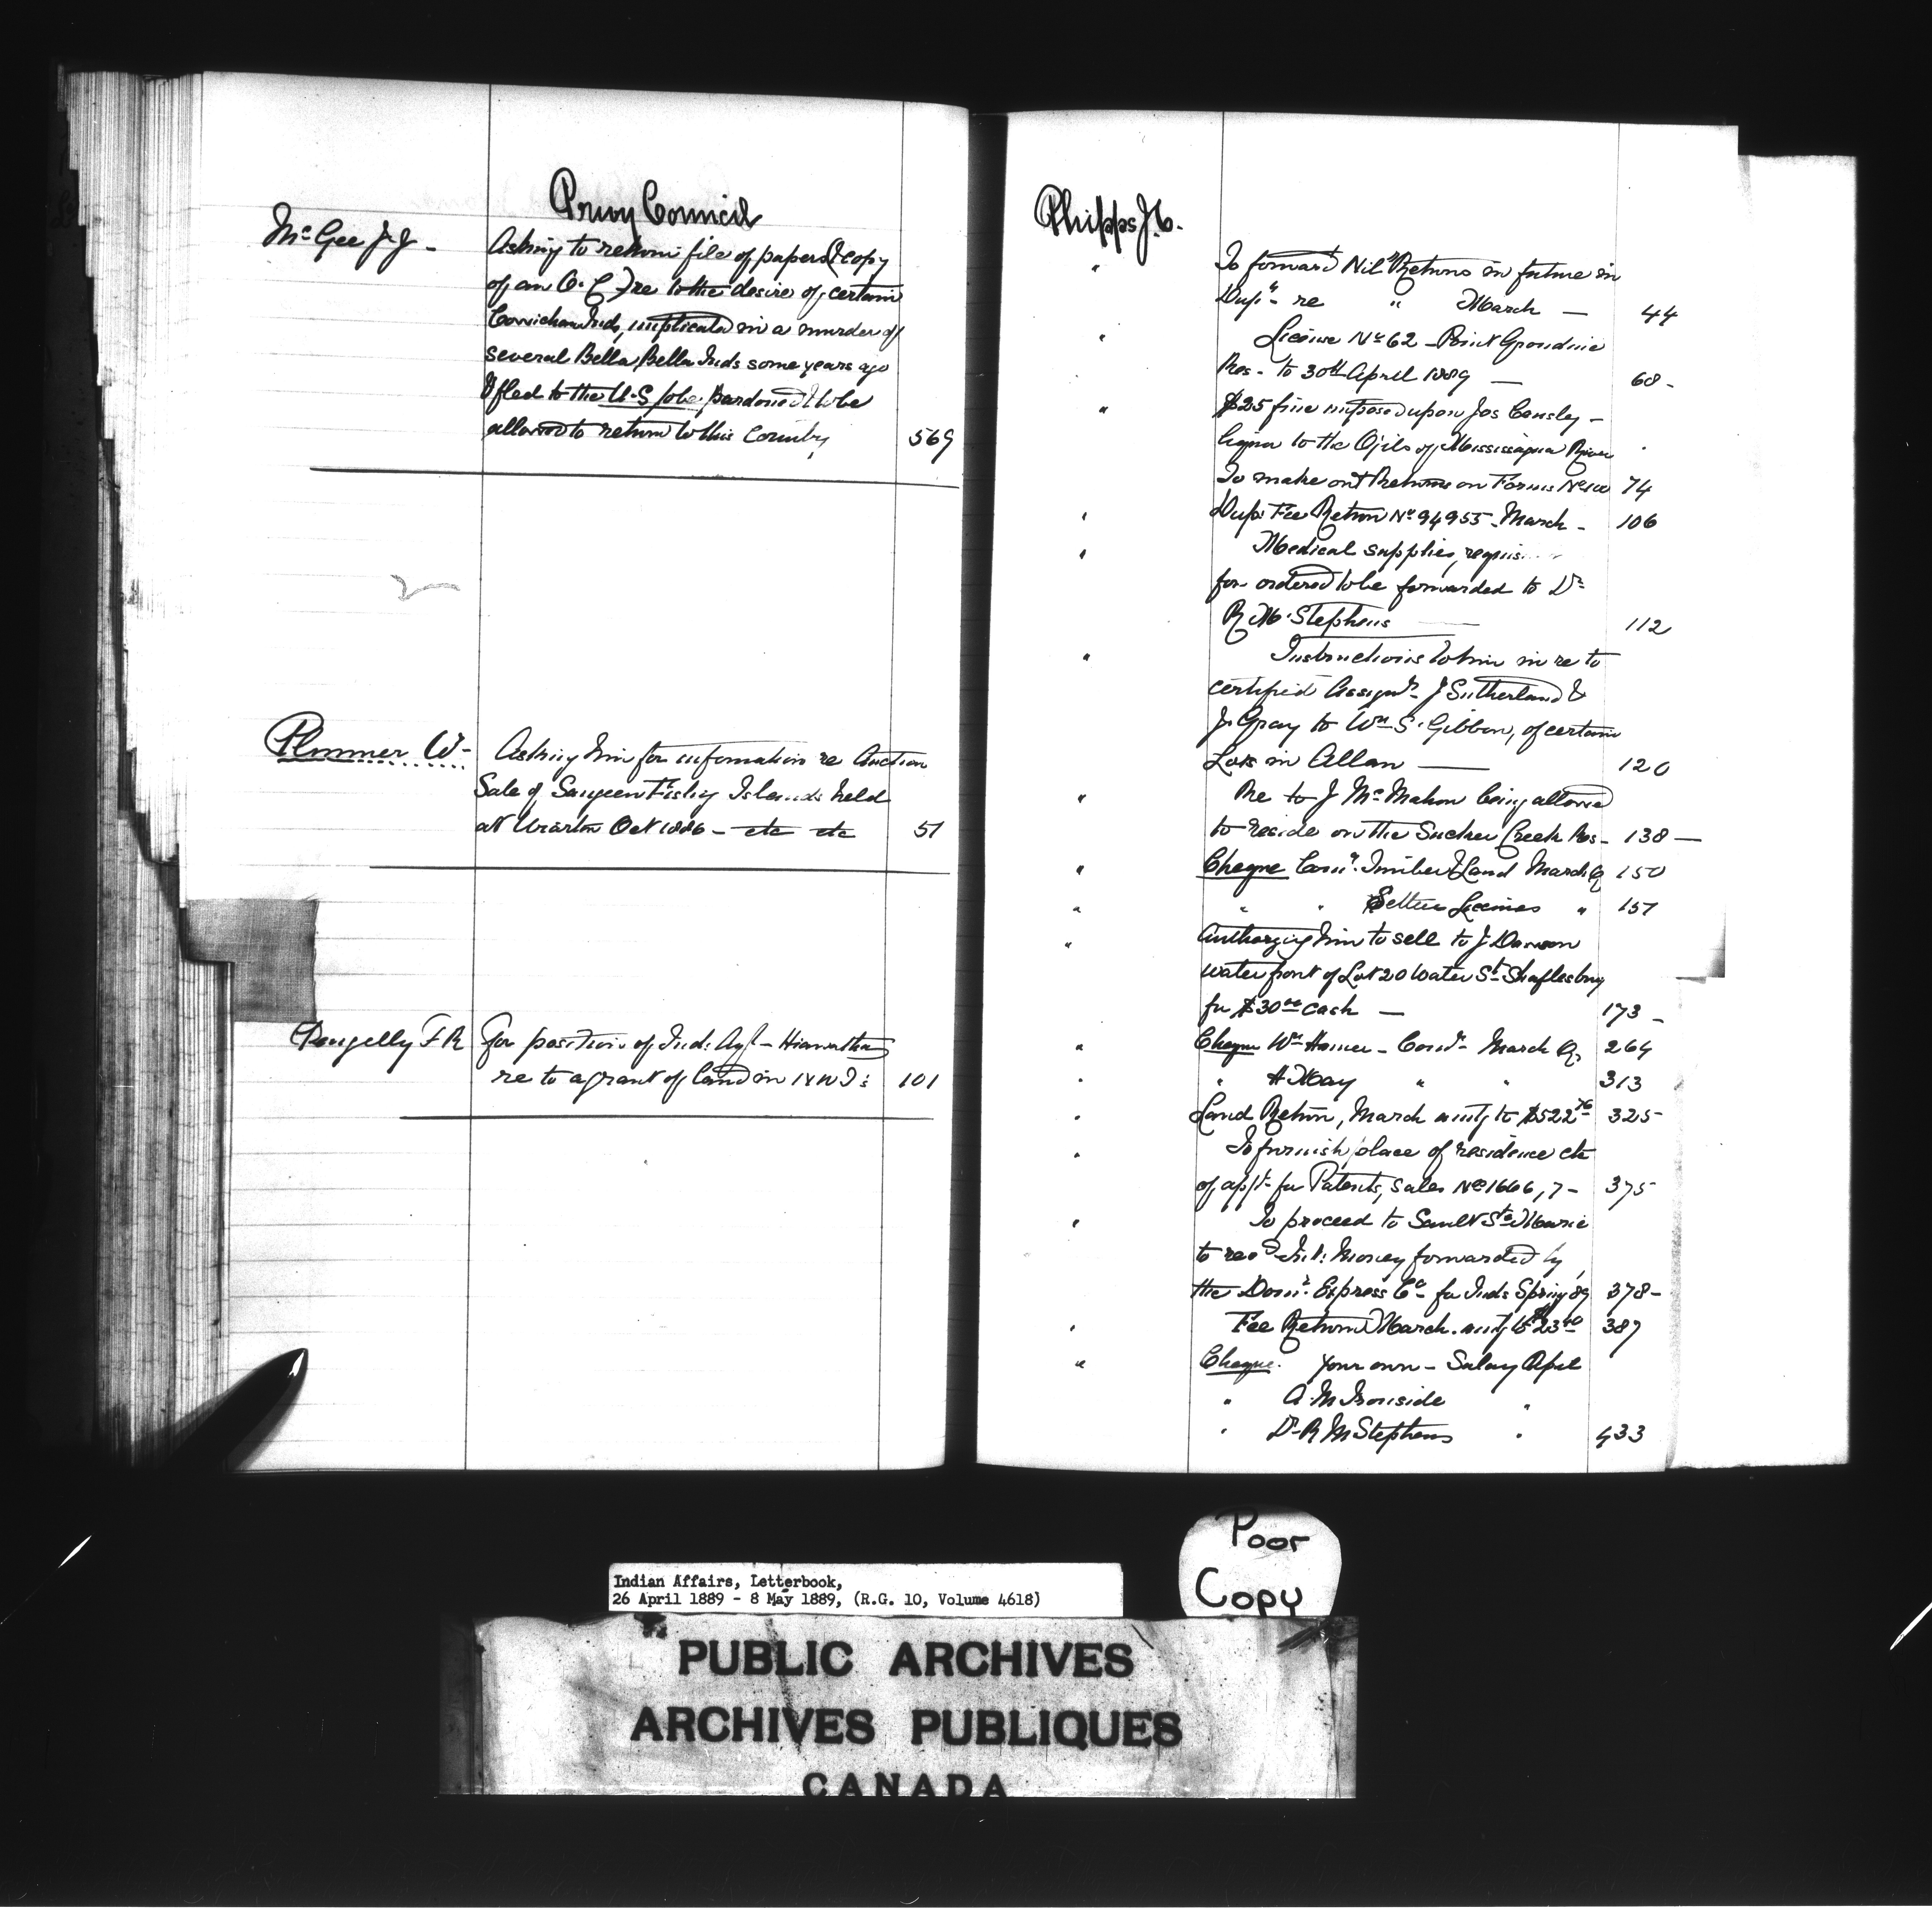 Privy Council
McGee J.J -
Asking to return file of papers (& copy
of an O.C.) re to the desire of certain
Cowichan Inds, implicated in a murder of
several Bella Bella Inds some years ago
& fled to the U.S to be pardoned & to be
allowed to return to this Country 569
Plummer W-
Asking him for information re Auction
Sale of Saugeen Fishg Islands held
at Wiarton Oct 1886 - etc etc 51
Pengelly F R For position of Ind: Agt - Hiawatha
re to a grant of land in N W T's 101
Phipps J.C.
" To forward "Nil" Returns in future in
Dupte re " March — 44
" License No 62 - Point Grondine
Res - to 30th April 1889 — 68-
" $25 fine imposed upon Jos Censley -
liquor to the Ojibs of Mississagua River
To make out Returns on Forms No 74
" Dup: Fee Return No 94955 - March - 106
" Medical supplies, requis
for ordered to be forwarded to Dr
R.M. Stephens — 112
" Instructions to him in re to
certified Assignt - J Sutherland &
J. Gray to Wm S. Gibbon, of certain
Lots in Allan — 120
" Re to J McMahon being allowed
to reside on the Sucker Creek Res - 138 —
" Cheque Comn Timber & Land March Q 150
" " " Settlers Licenses " 157
" Authorizing him to sell to J Dawson
water front of Lot 20 Water St Shaftesbury
for $30.00 cash — 173 -
" Cheque Wm Hamer - Cond - March Q. 264
" " H May " " 313
" Land Return, March amtg to $522.76 325-
" To furnish place of residence etc
of applt - for Patents, Sales Nos 1666, 7 - 375
" To proceed to Sault Ste Marie
to recv Int: Money forwarded by
the Domn. Express Co for Inds Spring 89 378-
" Fee Return March. amtg to $23.40 387
" Cheque. Your own - Salary April
" A. M Ironside "
" Dr R M Stephens " 433
Poor
Copy
Indian Affairs, Letterbook,
26 April 1889 - 8 May 1889, (R.G. 10, Volume 4618)
PUBLIC ARCHIVES
ARCHIVES PUBLIQUES
CANADA